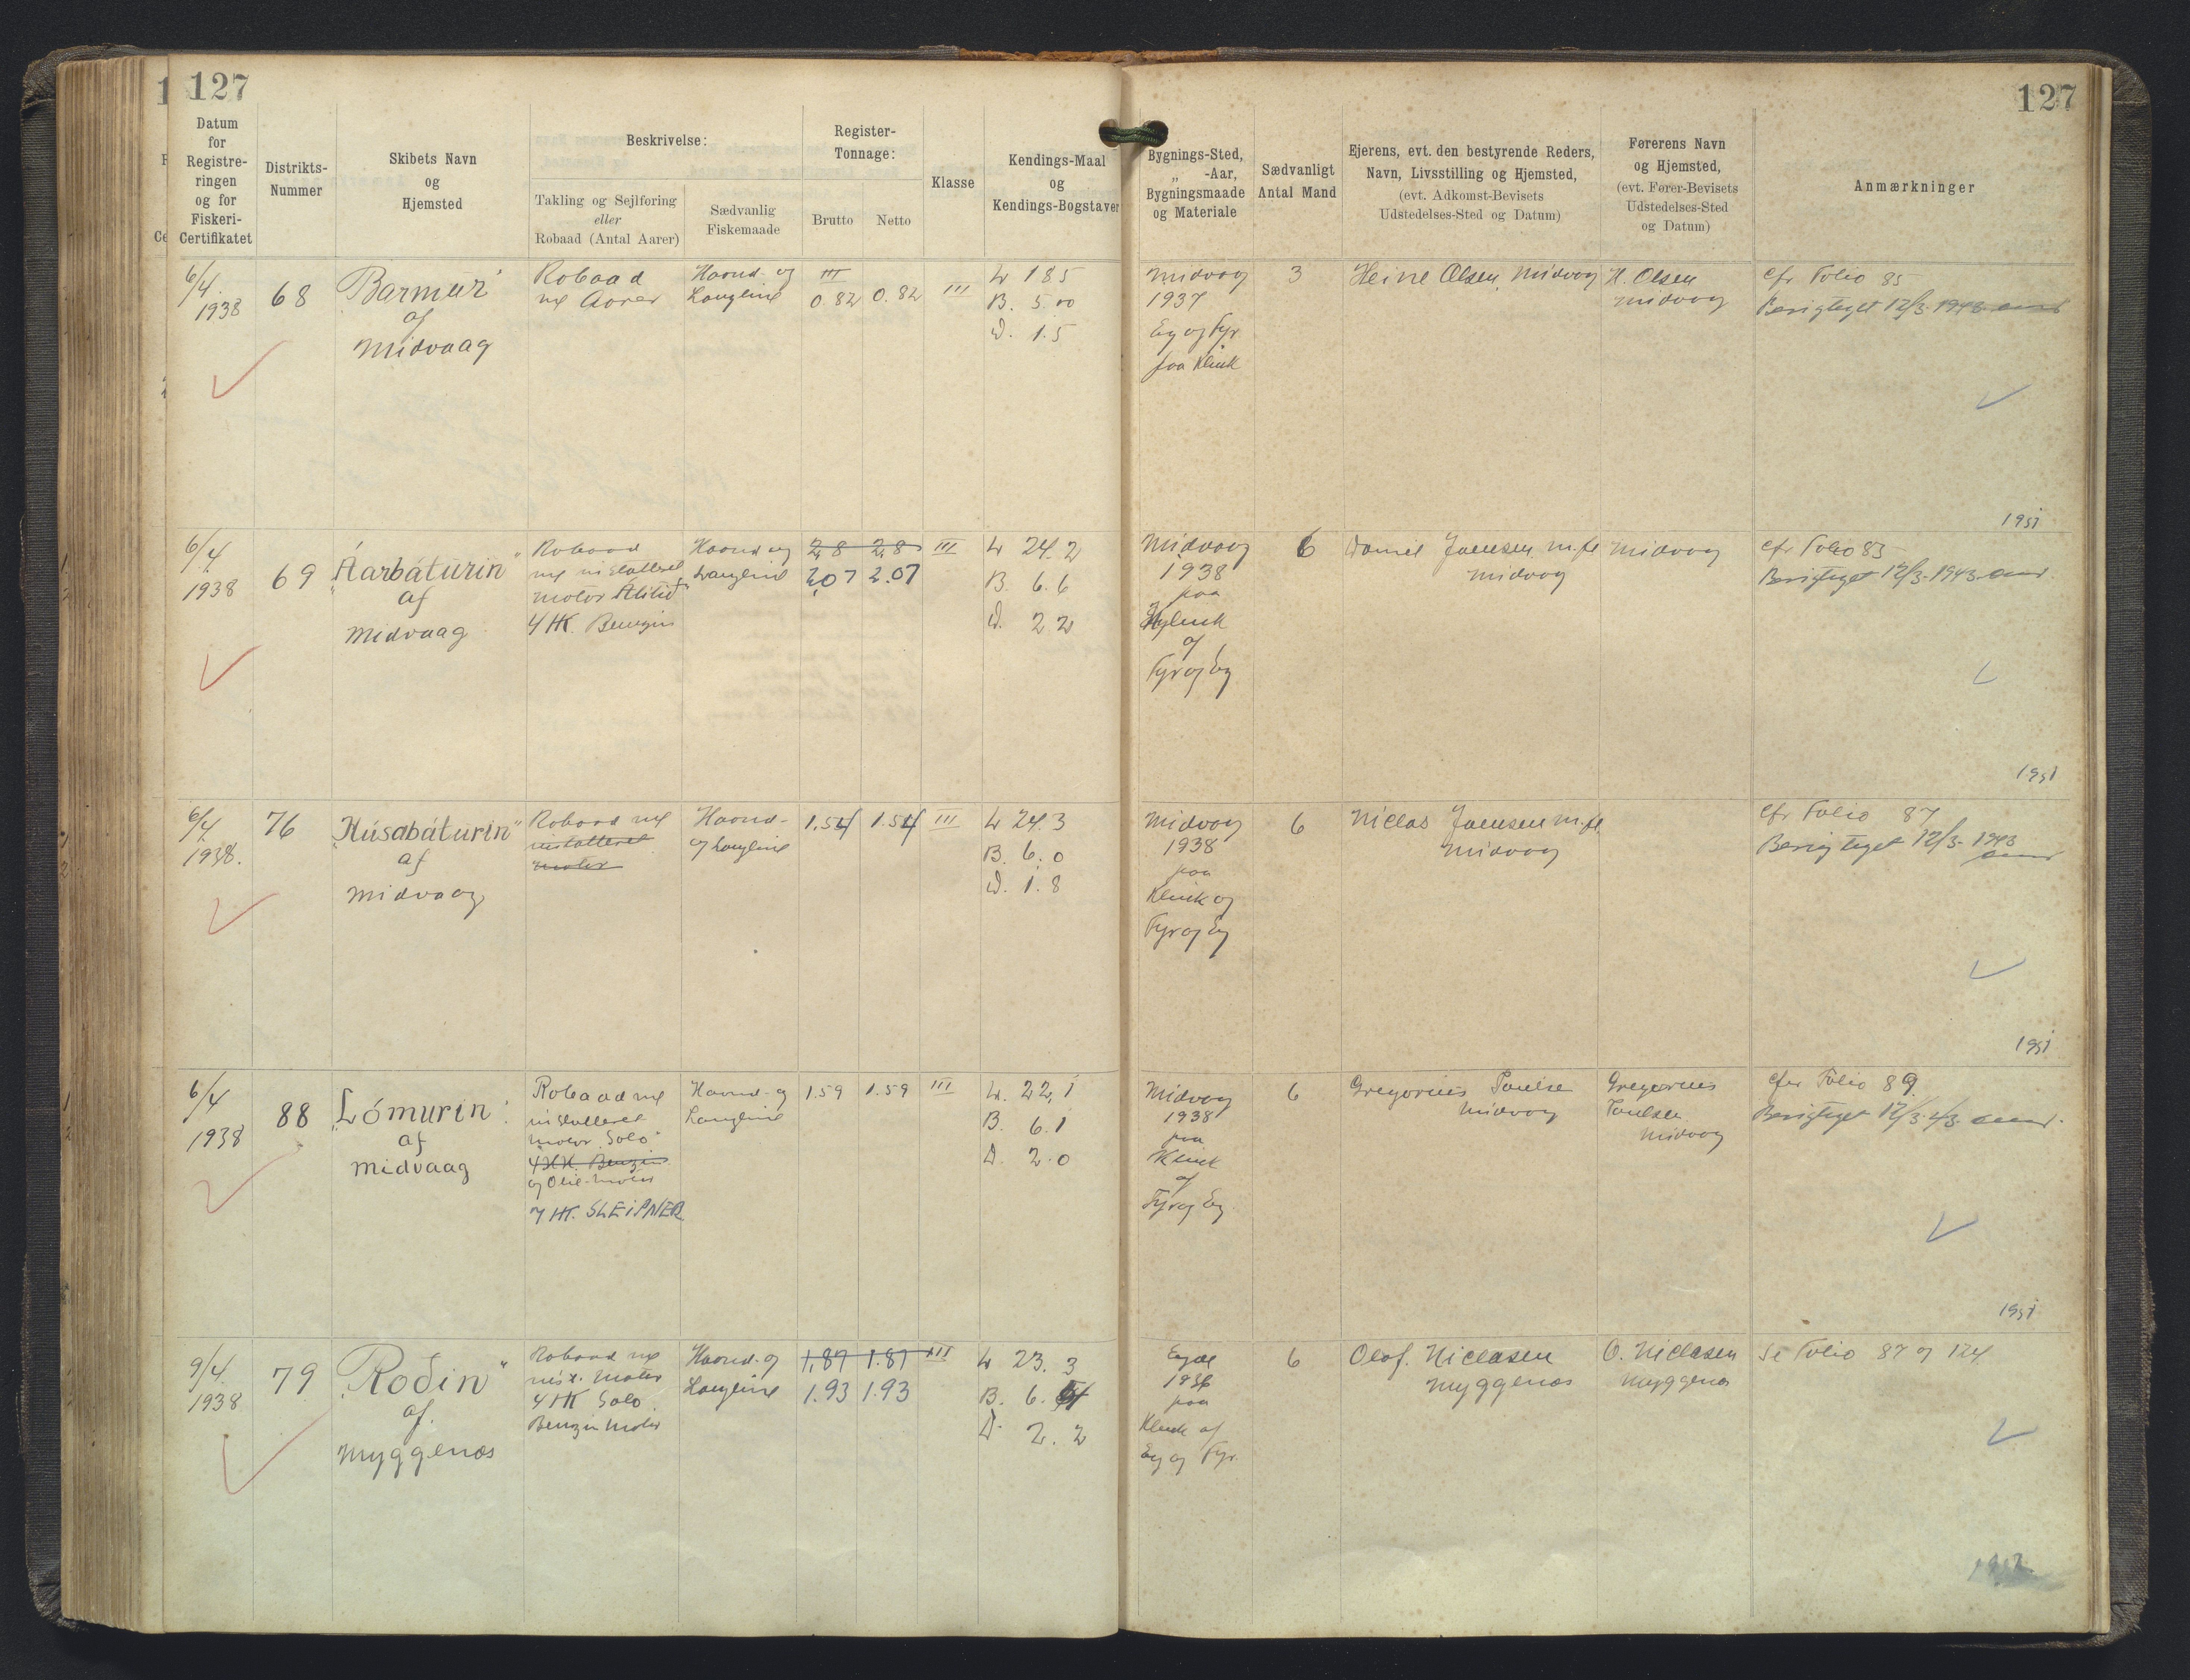 127
127
Datum
for
Registre-
ringen
og for
Fiskeri-
Certifikatet
Distrikts-
Nummer
Skibets Navn
og
Hjemsted
Beskrivelse:
Takling og Sejlføring
eller
Robaad (Antal Aarer)
Sædvanlig
Fiskemaade
Register-
Tonnage:
Brutto
Netto
Klasse
Kendings-Maal
og
Kendings-Bogstaver
Bygnings-Sted,
„ -Aar,
Bygningsmaade
og Materiale
Sædvanligt
Antal Mand
Ejerens, evt. den bestyrende Reders,
Navn, Livsstilling og Hjemsted,
(evt. Adkomst-Bevisets
Udstedelses-Sted og Datum)
Førerens Navn
og Hjemsted,
(evt. Fører-Bevisets
Udstedelses-Sted
og Datum)
Anmærkninger
6/4.
1938
68
Barmur
af
Midvaag
Robaad
Aarer
Haand- og
Langline
III
0.82
0.82
III
L 18 5
B. 5.00
D. 1.5
Midvaag
1937
Eg og Fyr
paa Klink
3
Heine Olsen, Midvaag
H. Olsen
Midvaag
cfr Folio 85
Berigtiget 12/3. 1943
1951
6/4.
1938
69
„Áarbáturin“
af
Midvaag
Robaad
installeret
motor
4 HK. Benzin
Haand og
Langline
2,8
2,8
2,07
2.07
III
L 24.2
B. 6.6
D. 2 2
Midvaag
1938
paa
Klink
af
Fyr og Eg
6
Daniel Joensen m.fl
Midvaag
Midvaag
cfr Folio 83
Berigtiget 12/3. 1943.
1951
6/4.
1938.
76
„Húsabáturin“
af
Midvaag
Robaad
installeret
motor
Haand-
og Langline
1.54
1.54
III
L 24.3
B. 6.0
D. 1.8
Midvaag
1938
paa
Klink og
Fyr og Eg
6
Niclas Joensen m.fl.
Midvaag
cfr Folio 87
Berigtiget 12/3. 1943
1951
6/4
1938
88
„Lómurin“
af
Midvaag
Robaad
installeret
motor „Solo“
4 HK. Benzin
og Olie-motor
7 HK. SLEIPNER
Haand- og
Langline
1.59
1.59
III
L. 22,1
B. 6.1
D. 2.0
Midvaag
1938
paa
Klink
af
Fyr og Eg
6
Gregorius
Midvaag
Gregorius
Poulsen
Midvaag
cfr Folio 89
Berigtiget 12/3. 43.
1951
9/4.
1938
79
„Roðin“
af.
Myggenæs
Robaad
inst. Motor
4 HK Solo
Benzin Motor
Haand- og
Langline
1,87
1.87
1.93
1.93
III
L 23. 3
B. 6.
D. 2. 2
paa
Klink af
Eg og Fyr.
6
Olaf. Niclasen
Myggenæs
O. Niclasen
Myggenæs
Se Folio 87 og 124